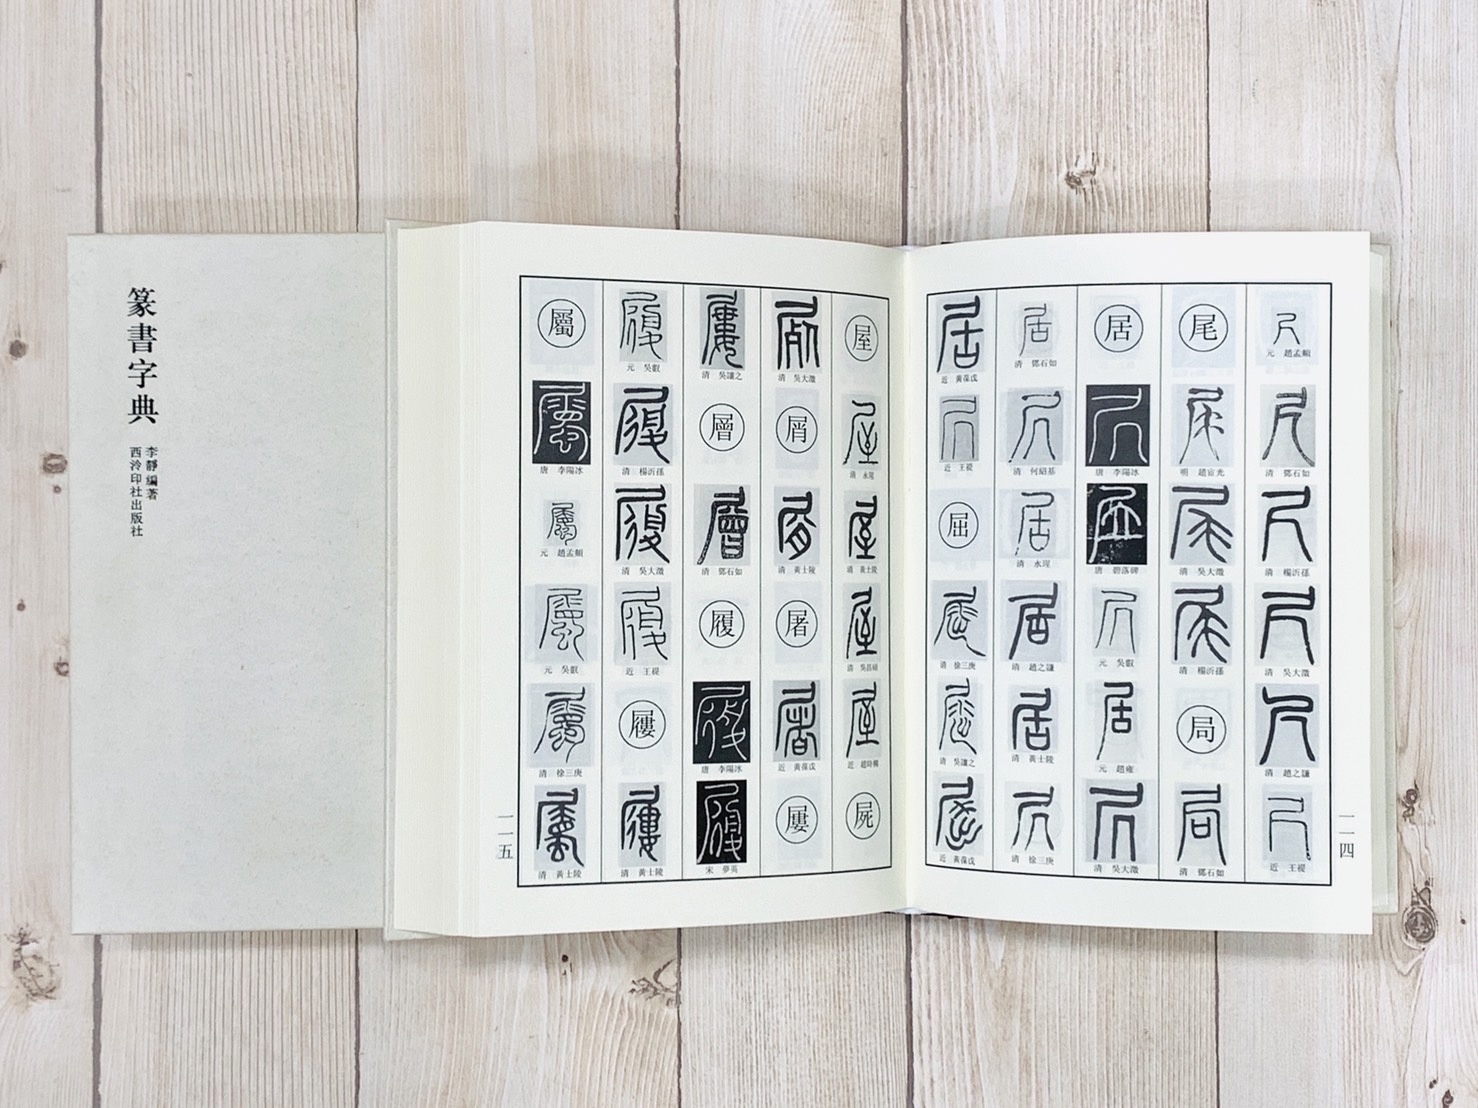 篆書字典
李靜 編著
西泠印社出版社
元 趙孟頫
清 鄧石如
清 楊沂孫
清 吳大澂
清 趙之謙
近 王禔
尾
明 趙宧光
清 吳大澂
清 楊沂孫
局
清 鄧石如
居
唐 李陽冰
唐 碧落碑
元 吳叡
元 趙雍
清 吳大澂
清 鄧石如
清 何紹基
清 永瑆
清 趙之謙
清 黃士陵
清 徐三庚
近 黃葆戉
近 王禔
屈
清 徐三庚
清 吳讓之
近 黃葆戉
一一四
屋
清 永瑆
清 黃士陵
清 吳昌碩
近 趙時棡
屍
清 吳大澂
屑
清 黃士陵
屠
近 黃葆戉
屢
清 吳讓之
層
清 鄧石如
履
唐 李陽冰
宋 夢英
元 吳叡
清 楊沂孫
清 吳大澂
近 王禔
屨
清 黃士陵
屬
唐 李陽冰
元 趙孟頫
元 吳叡
清 徐三庚
清 黃士陵
一一五